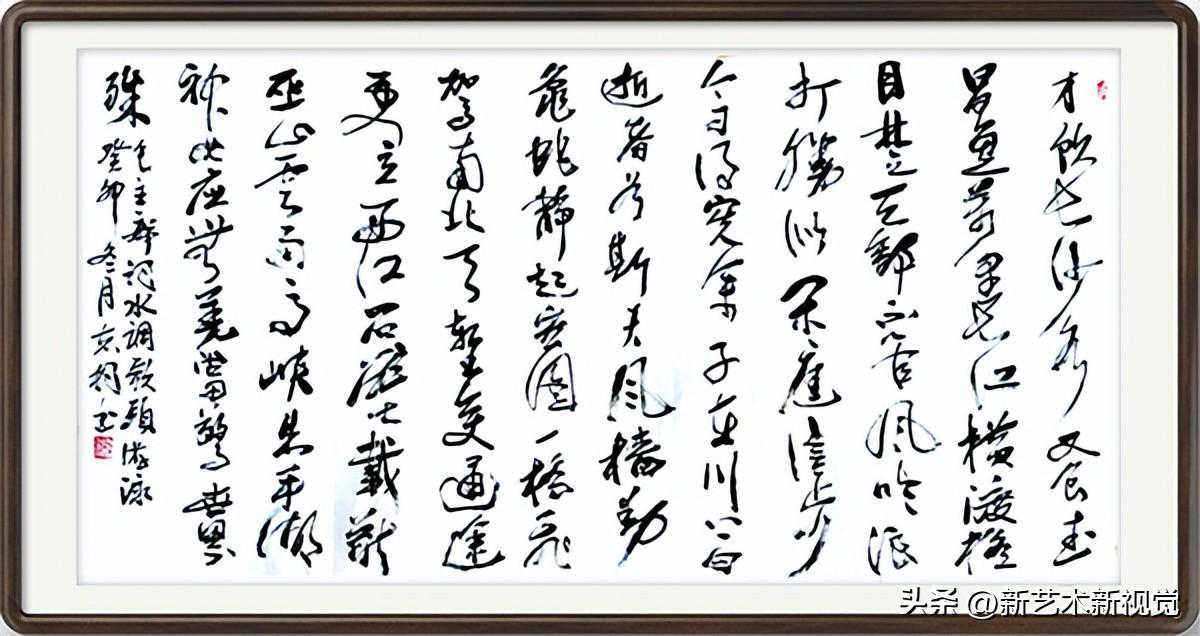 才飲长沙水又食武
昌鱼万里长江横渡极
目楚天舒不管風吹浪
打勝似闲庭信步
今日得宽余子在川上曰
逝者如斯夫風檣動
龜蛇静起宏圖一橋飛
架南北天堑变通途
更立西江石壁截断
巫山雲雨高峡出平湖
神女应無恙當驚世界
殊
毛主席词水調歌頭游泳
癸卯冬月
头条 @新艺术新视觉